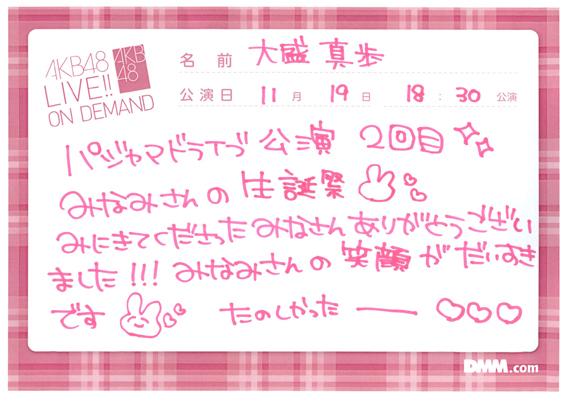 AKB48
LIVE!!
ON DEMAND
AKB
48
名前 大盛 真歩
公演日 11月 19日 18:30 公演
パジャマドライブ 公演 2回目
みなみさんの 生誕祭
みにきてくださった みなさん ありがとうござい
ました!!! みなみさんの 笑顔 が だいすき
です たのしかった ー
DMM.com